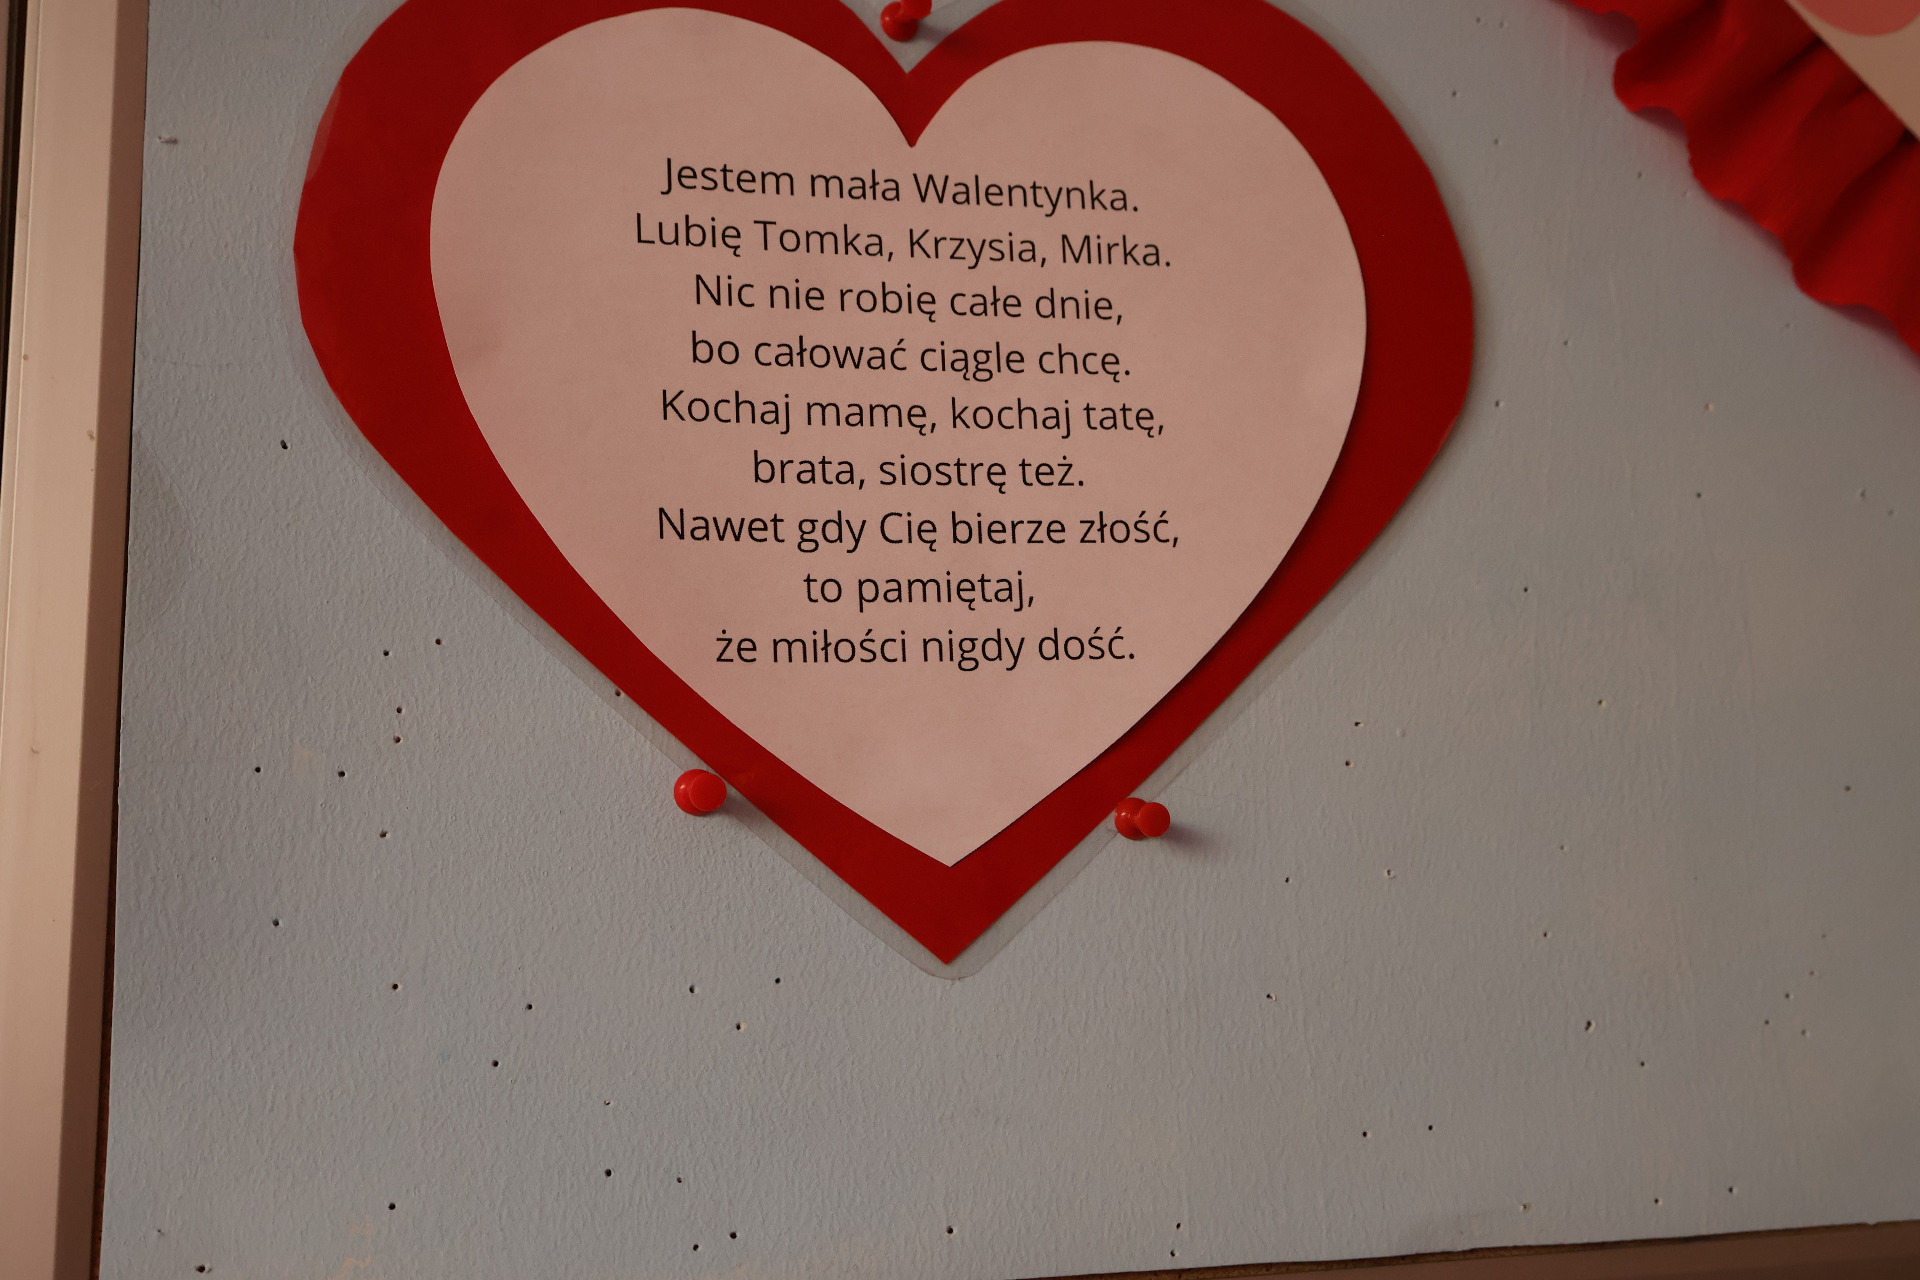 Jestem mała Walentynka.
Lubię Tomka, Krzysia, Mirka.
Nic nie robię całe dnie,
bo całować ciągle chcę.
Kochaj mamę, kochaj tatę,
brata, siostrę też.
Nawet gdy Cię bierze złość,
to pamiętaj,
że miłości nigdy dość.